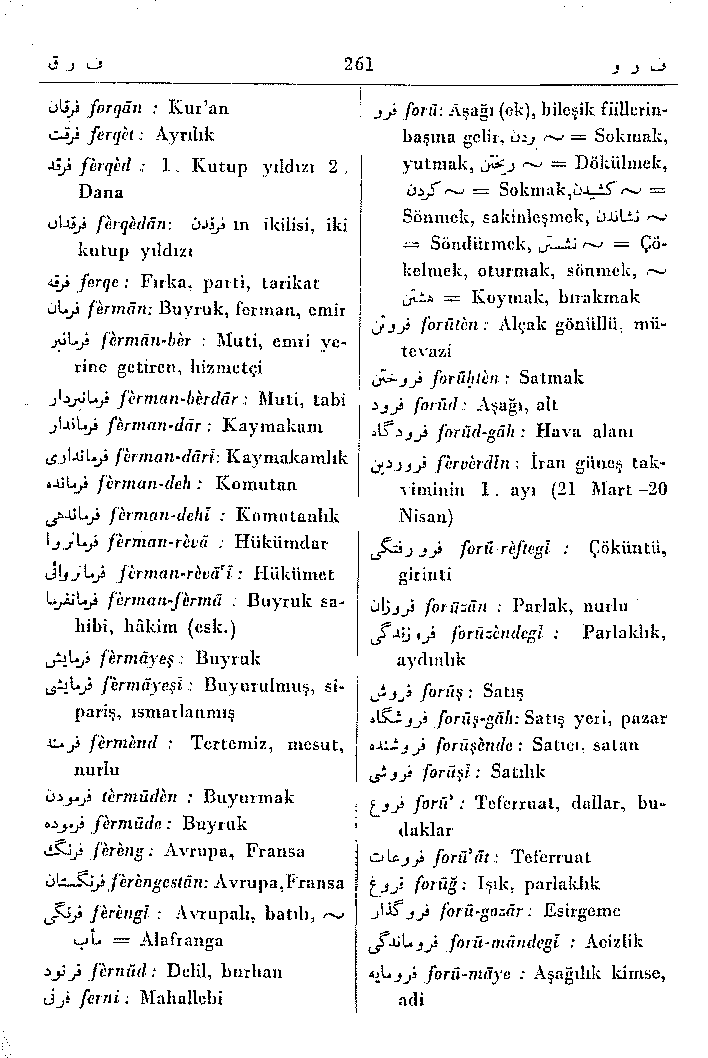 ف ر ق 261 ف ر و
فرقان forqān : Kur'an
فرقت ferqèt : Ayrılık
فرقد fèrqèd : 1. Kutup yıldızı 2.
Dana
فرقدان fèrqèdān: فرقد in ikilisi, iki
kutup yıldızı
فرقه ferqe : Fırka, parti, tarikat
فرمان fèrmān: Buyruk, ferman, emir
فرمانبر fèrmān-bèr : Muti, emri ye-
rine getiren, hizmetçi
فرمانبردار fèrman-bèrdār : Muti, tabi
فرماندار fèrman-dār : Kaymakam
فرمانداری fèrman-dārī: Kaymakamlık
فرمانده fèrman-deh : Komutan
فرماندهی fèrman-dehī : Komutanlık
فرمانروا fèrman-rèvā : Hükümdar
فرمانروائی fèrman-rèvā'ī : Hükümet
فرمانفرما fèrman-fèrmā : Buyruk sa-
hibi, hâkim (esk.)
فرمایش fèrmāyeş : Buyruk
فرمایشی fèrmāyeşī : Buyurulmuş, si-
pariş, ısmarlanmış
فرمند fèrmènd : Tertemiz, mesut,
nurlu
فرمودن fèrmūdèn : Buyurmak
فرموده fèrmūde : Buyruk
فرنگ fèrèng : Avrupa, Fransa
فرنگستان fèrèngestān: Avrupa,Fransa
فرنگی fèrèngī : Avrupalı, batılı, ~
مآب = Alafranga
فرنود fèrnūd : Delil, burhan
فرنی ferni : Mahallebi
فرو forū: Aşağı (ek), bileşik fiillerin-
başına gelir, بردن ~ = Sokmak,
yutmak, ریختن ~ = Dökülmek,
کردن ~ = Sokmak, کشیدن ~ =
Sönmek, sakinleşmek, نشاندن ~
= Söndürmek, نشستن ~ = Çö-
kelmek, oturmak, sönmek, ~
هشتن = Koymak, bırakmak
فروتن forūtèn : Alçak gönüllü, mü-
tevazi
فروختن forūhtèn : Satmak
فرود forūd : Aşağı, alt
فرودگاه forūd-gāh : Hava alanı
فروردین fèrvèrdīn : İran güneş tak-
viminin 1. ayı (21 Mart -20
Nisan)
فرورفتگی forū-rèftegī : Çöküntü,
girinti
فروزان forūzān : Parlak, nurlu
فروزندگی forūzèndegī : Parlaklık,
aydınlık
فروش forūş : Satış
فروشگاه forūş-gāh: Satış yeri, pazar
فروشنده forūşènde : Satıcı, satan
فروشی forūşī : Satılık
فروع forū' : Teferruat, dallar, bu-
daklar
فروعات forū'āt : Teferruat
فروغ forūğ : Işık, parlaklık
فروگذار forū-gozār : Esirgeme
فروماندگی forū-māndegī : Acizlik
فرومایه forū-māye : Aşağılık kimse,
adi